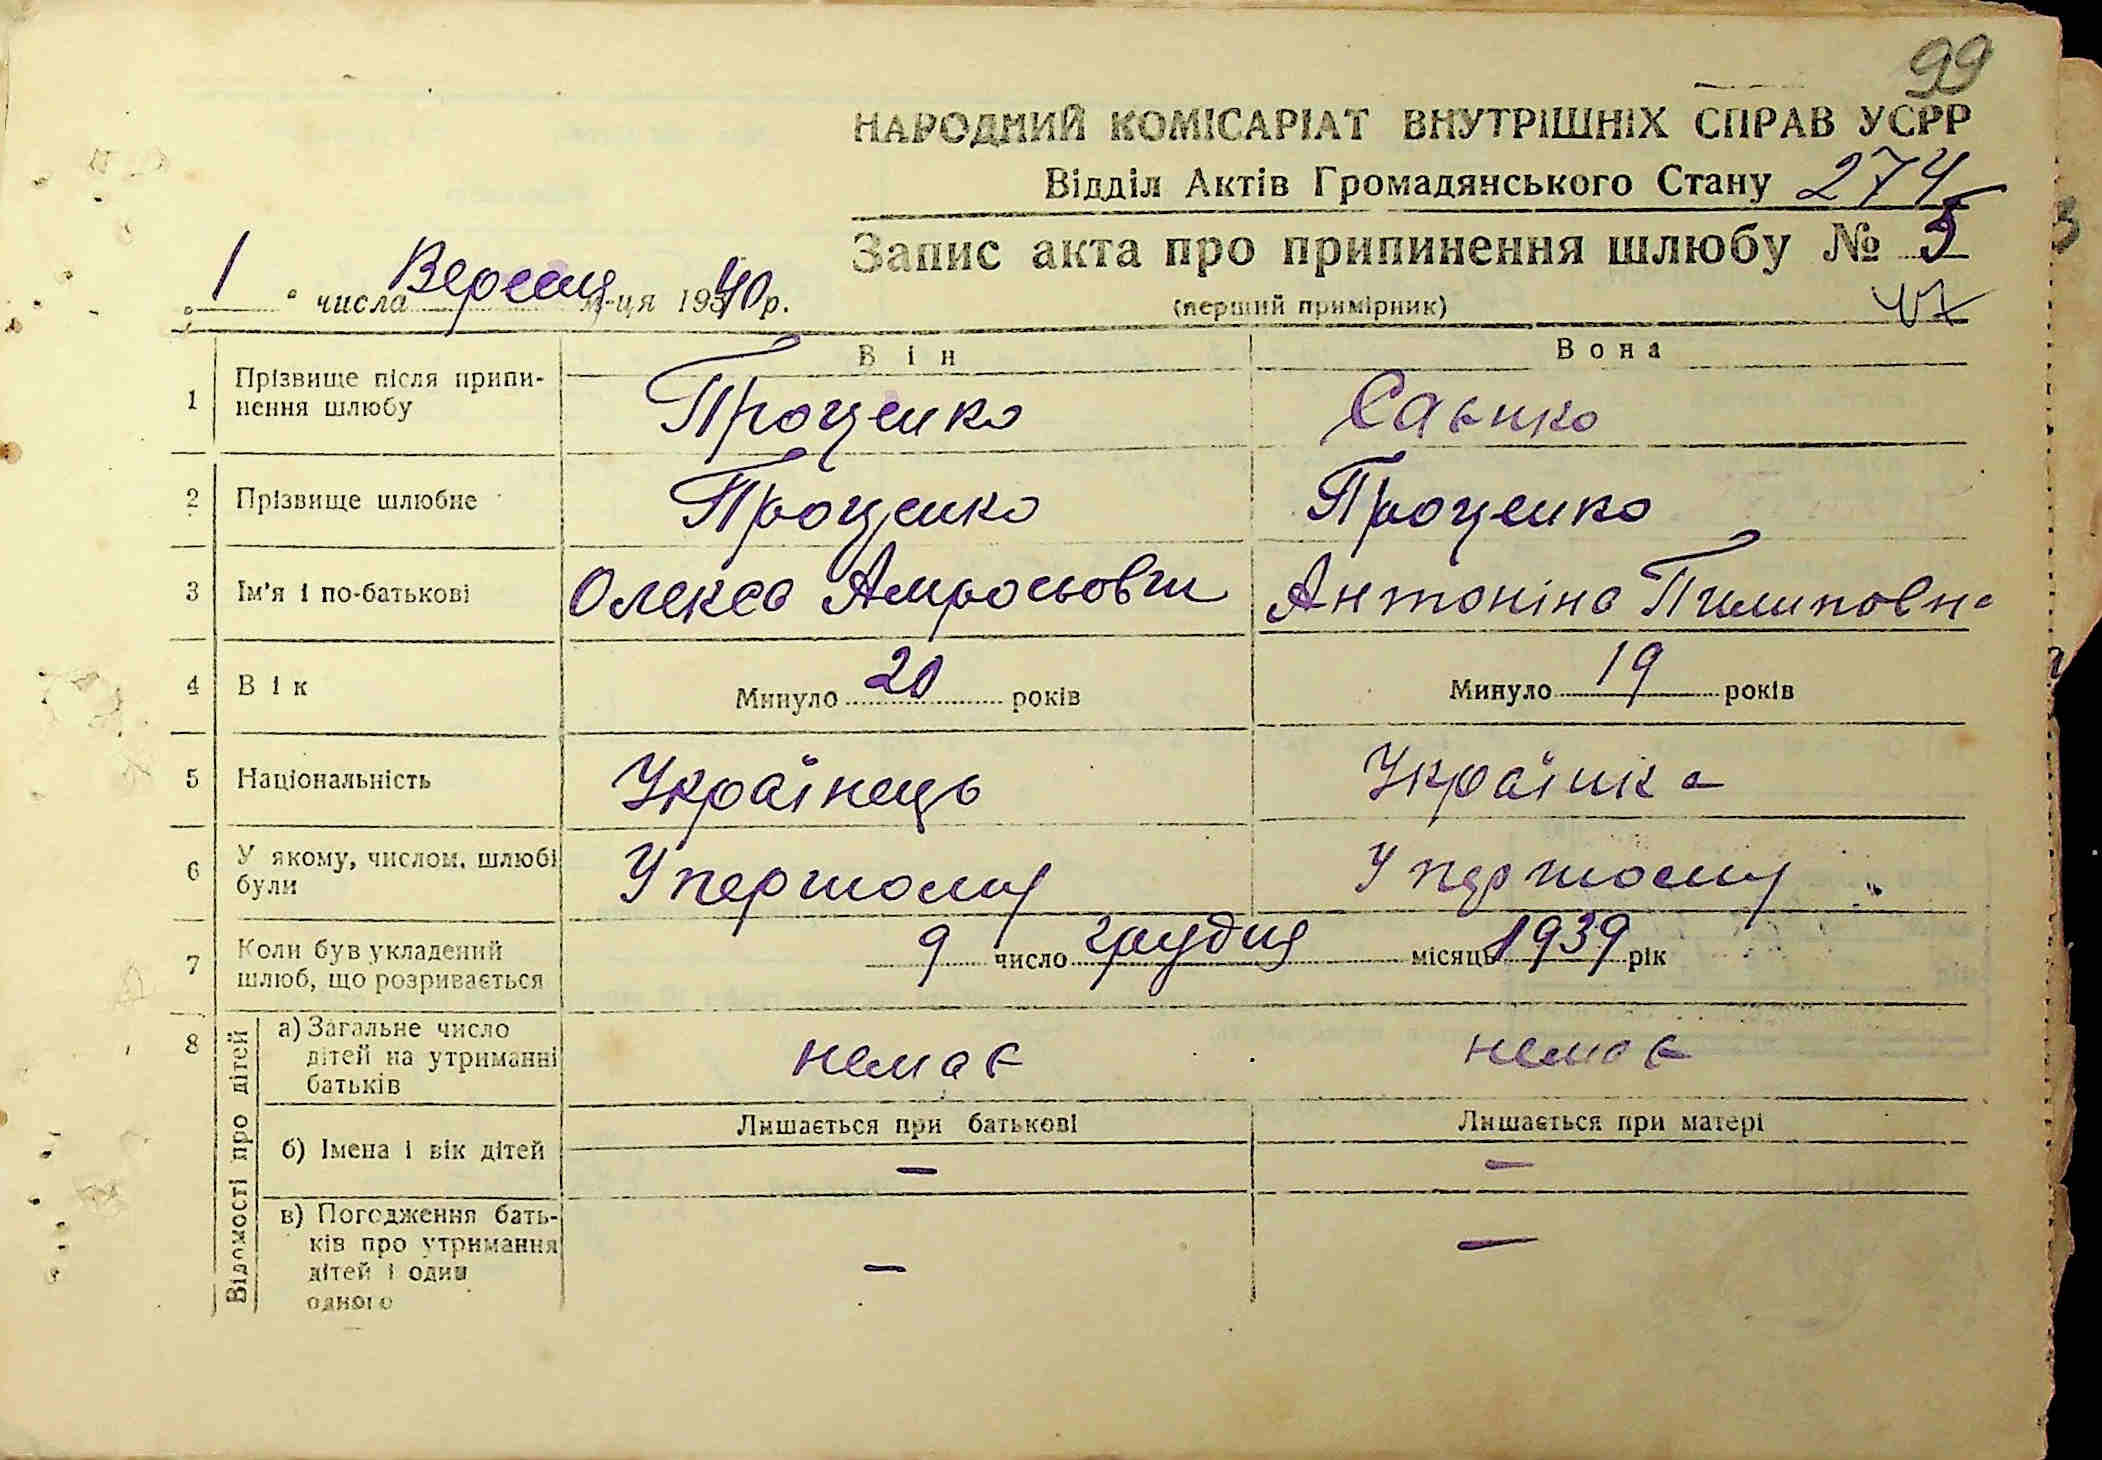 99
НАРОДНИЙ КОМІСАРІАТ ВНУТРІШНІХ СПРАВ УСРР
Відділ Актів Громадянського Стану 274
Запис акта про припинення шлюбу № 5
„ 1 “ числа Вересня м-ця 1940 р.
(перший примірник)
Він Вона
1 Прізвище після припинення шлюбу Проценко Саєнко
2 Прізвище шлюбне Проценко Проценко
3 Ім'я і по-батькові Олекса Амросьович Антоніна Пилиповна
4 Вік Минуло 20 років Минуло 19 років
5 Національність Українець Українка
6 У якому, числом, шлюбі були У першому У першому
7 Коли був укладений шлюб, що розривається 9 число грудня місяць 1939 рік
8 Відомості про дітей
а) Загальне число дітей на утриманні батьків немає немає
Лишається при батькові Лишається при матері
б) Імена і вік дітей — —
в) Погодження батьків про утримання дітей і один одного — —